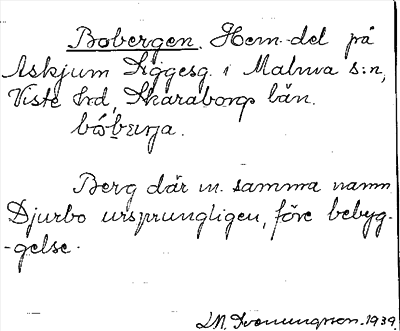 Bobergen. Hem. del på
Askjum Äggesg. i Malma s:n,
Viste hrd, Skaraborgs län.
Berg där m. samma namn
Djurbo ursprungligen, före bebyg-
-gelse.
1939.